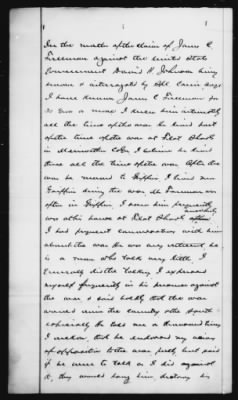 In the matter of the claim of James C.
Freeman against the United States
Government David N. Johnson being
sworn & interrogated by Spl Comr says
I have known James C. Freeman for
20 or more I knew him intimately
all the time of the war he lived part
of the time of the war at Flat Shoals
in Meriwether Co Ga I believe he lived
there all the time of the war After the
war he moved to Griffin I lived near
Griffin during the war Mr Freeman was
often in Griffin, I saw him frequently
was at his house at Flat Shoals
I had frequent conversations with him
about the war He was very reticent he
is a man who talks very little, I
Generally did the talking I expressed
myself frequently in his presence against
the war & said boldly that the war
would ruin the country & the South
especially He told me a thousand times
I reckon that he endorsed my views
of opposition to the war fully but said
if he were to talk as I did against
it, they would hang him, destroy his